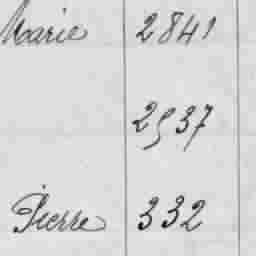 Marie 2841
2937
Pierre 332